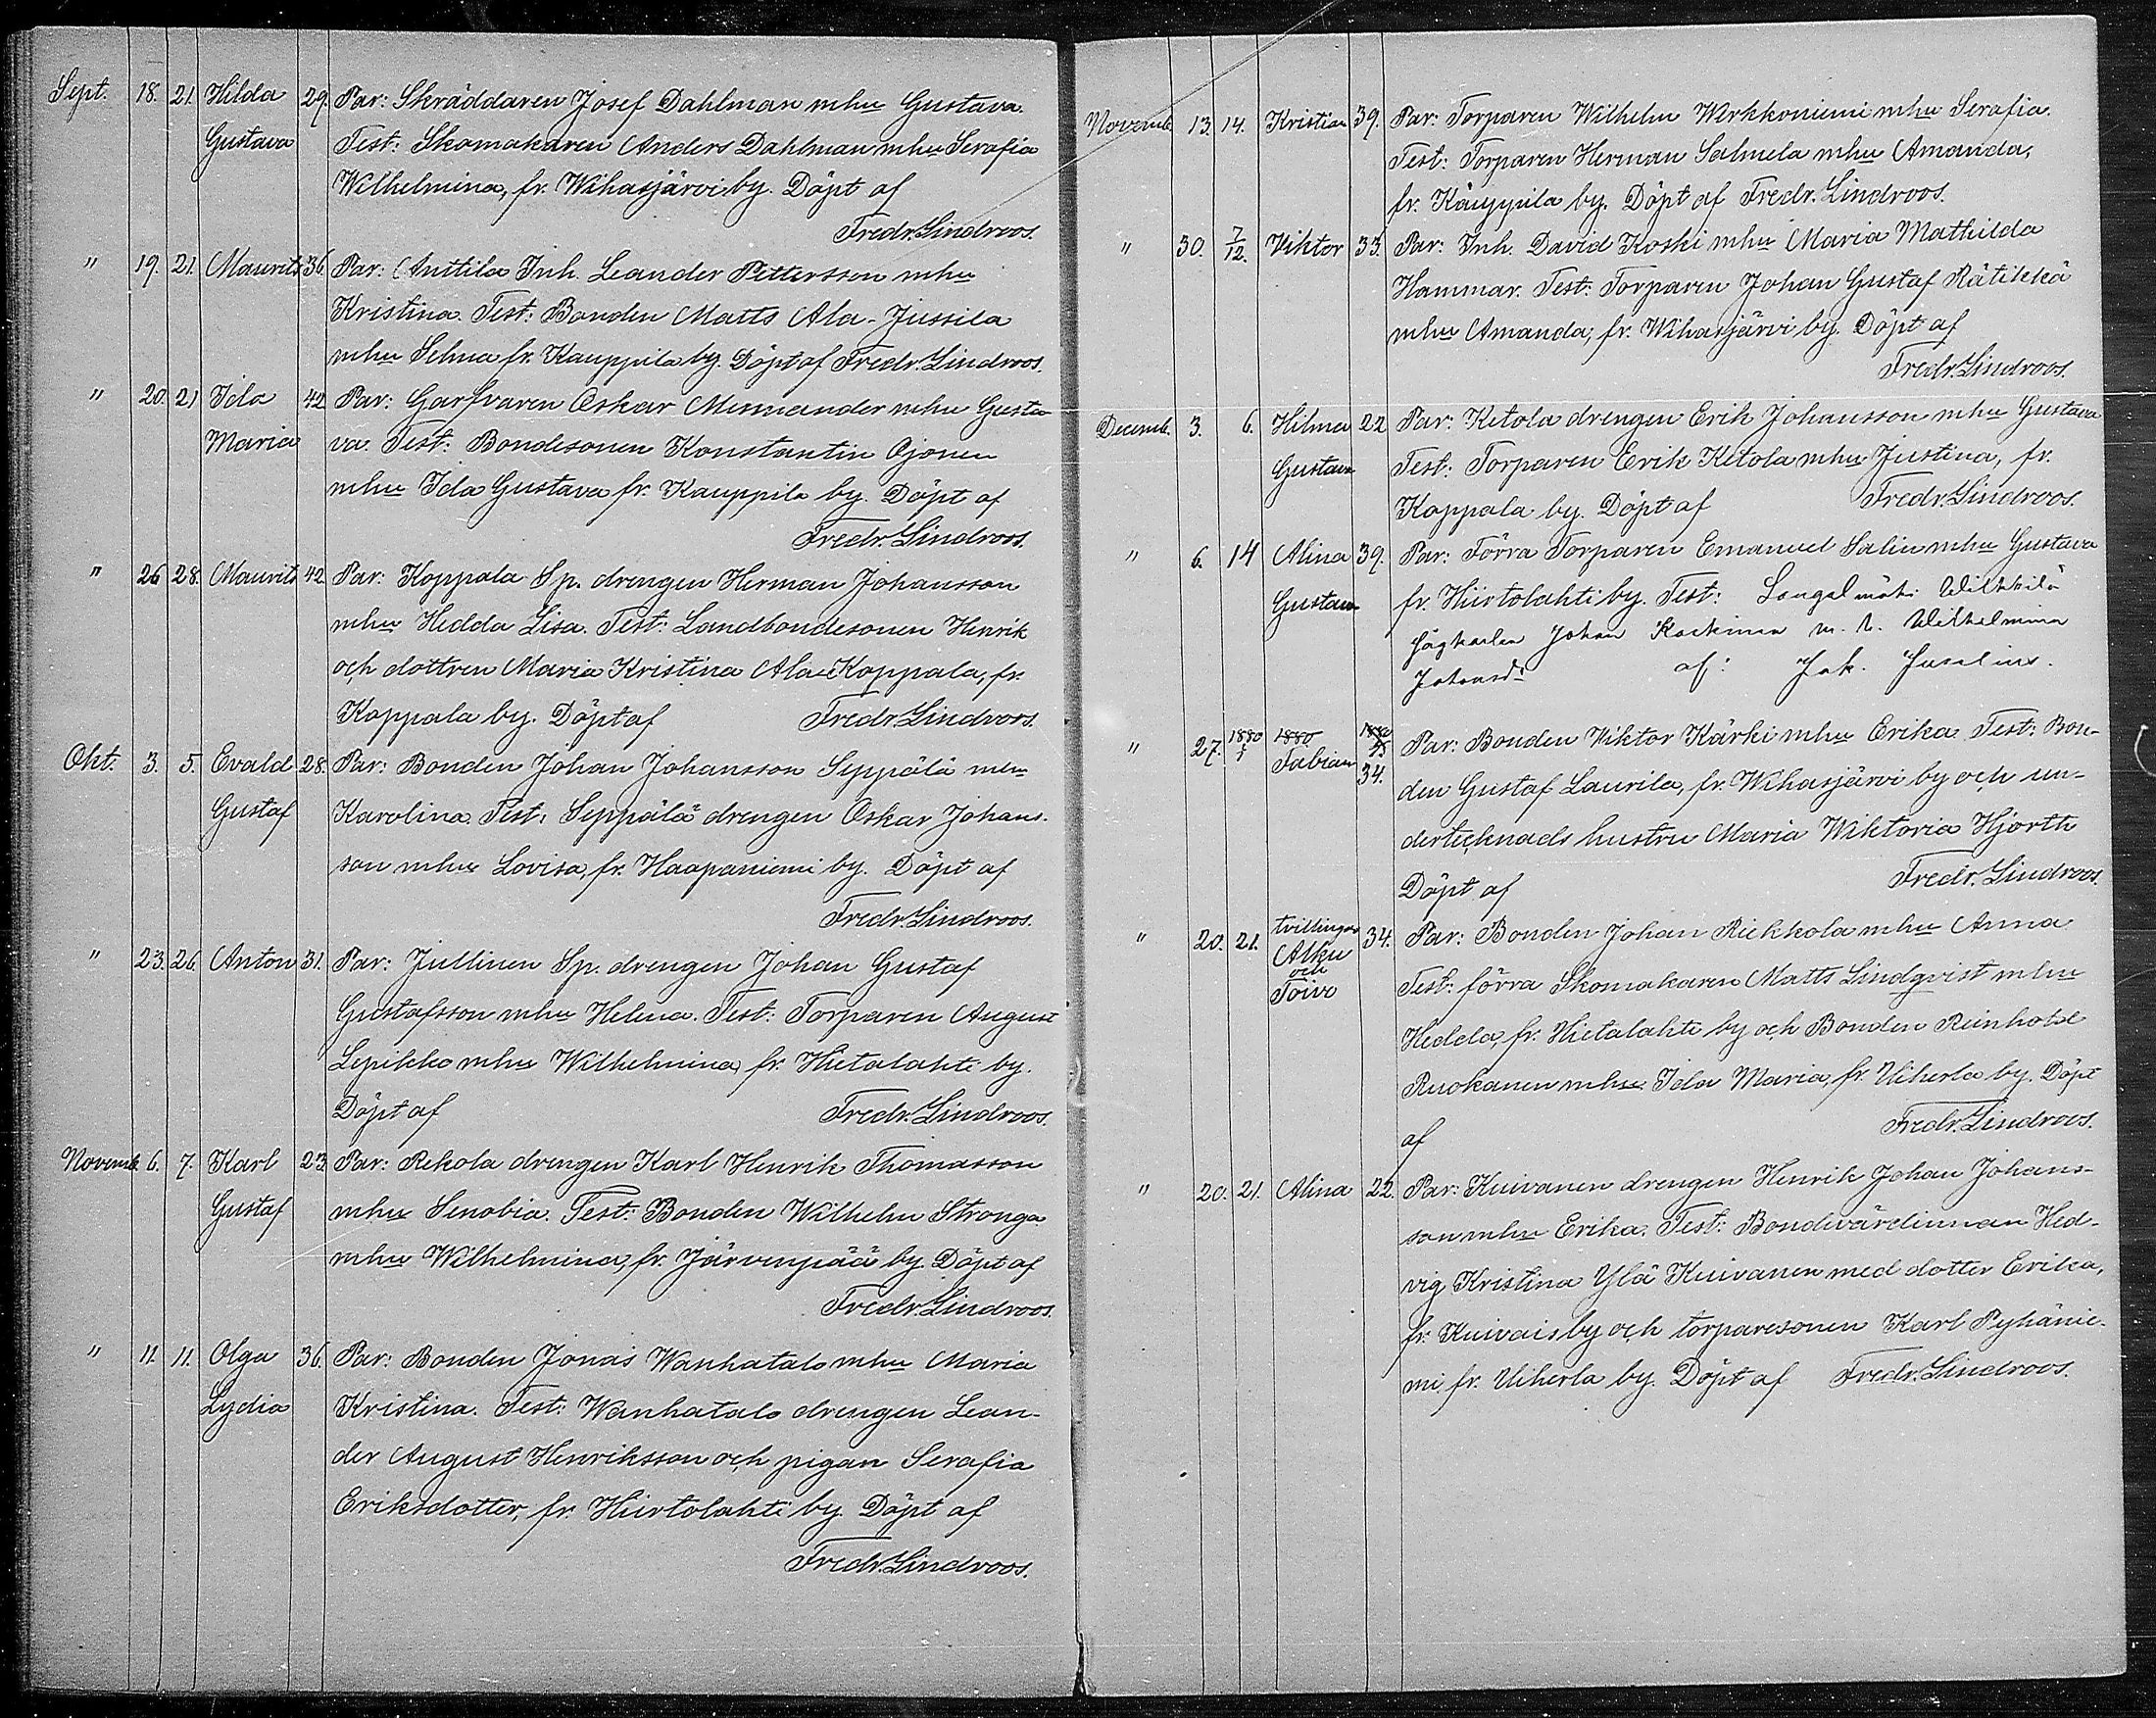 Sept. 18. 21. Hilda 29. Par: Skräddaren Josef Dahlman mhu Gustava.
Gustava Test: Skomakaren Anders Dahlman mhu Serafia
Wilhelmina, fr. Wihasjärvi by. Döpt af
Fredr. Lindroos.
" 19. 21. Maurits 36. Par: Anttila Inh. Leander Pettersson mhu
Kristina. Test: Bonden Matts Ala-Jussila
mhu Selma fr. Kauppila by. Döpt af Fredr. Lindroos.
" 20. 21 Ida 42 Par: Garfvaren Oskar Mennander mhu Gusta
Maria va. Test: Bondesonen Konstantin Ojonen
mhu Ida Gustava fr. Kauppila by. Döpt af
Fredr. Lindroos.
" 26 28. Maurits 42 Par: Koppala Sp. drengen Herman Johansson
mhu Hedda Lisa. Test: Landbondesonen Henrik
och dottren Maria Kristina Ala-Koppala, fr.
Koppala by. Döpt af Fredr. Lindroos.
Okt. 3. 5. Evald 28. Par: Bonden Johan Johansson Seppälä mhu
Gustaf Karolina. Test: Seppälä drengen Oskar Johans-
son mhu Lovisa, fr. Haapaniemi by. Döpt af
Fredr. Lindroos.
" 23. 26. Anton 31. Par: Jullinen Sp. drengen Johan Gustaf
Gustafsson mhu Helena. Test: Torparen August
Lepikko mhu Wilhelmina, fr. Hietalahti by.
Döpt af Fredr. Lindroos.
Novemb. 6. 7. Karl 23 Par: Rekola drengen Karl Henrik Thomasson
Gustaf mhu Senobia. Test: Bonden Wilhelm Stronga
mhu Wilhelmina, fr. Järvenpää by. Döpt af
Fredr. Lindroos.
" 11. 11. Olga 36. Par: Bonden Jonas Wanhatalo mhu Maria
Lydia Kristina. Test: Wanhatalo drengen Lean-
der August Henriksson och pigan Serafia
Eriksdotter, fr. Hiirtolahti by. Döpt af
Fredr. Lindroos.
Novemb. 13. 14. Kristian 39. Par: Torparen Wilhelm Werkkoniemi mhu Serafia.
Test: Torparen Herman Salmela mhu Amanda,
fr. Kauppila by. Döpt af Fredr. Lindroos.
" 30. 7/12. Viktor 33. Par: Inh. David Koski mhu Maria Mathilda
Hammar. Test: Torparen Johan Gustaf Rätikkä
mhu Amanda, fr. Wihasjärvi by. Döpt af
Fredr. Lindroos.
Decemb. 3. 6. Hilma 22 Par: Ketola drengen Erik Johansson mhu Gustava
Gustava Test: Torparen Erik Ketola mhu Justina, fr.
Koppala by. Döpt af Fredr. Lindroos.
" 6. 14 Alina 39. Par: Förra Torparen Emanuel Salin mhu Gustava
Gustava fr. Hiirtolahti by. Test: Längelmäki
Johan m. h. Wilhelmina
af: Jak.
" 27. 1880 1880 1880 Par: Bonden Viktor Kärki mhu Erika. Test: Bon-
Fabian 34. den Gustaf Laurila, fr. Wihasjärvi by och un-
dertecknads hustru Maria Wiktoria Hjorth
Döpt af Fredr. Lindroos.
" 20. 21. tvillingar 34. Par: Bonden Johan Riekkola mhu Anna
Alku
och
Toivo Test: förra Skomakaren Matts Lindqvist mhu
Hedda, fr. Hietalahti by och Bonden Reinhold
Ruokanen mhu Ida Maria, fr. Uiherla by. Döpt
af Fredr. Lindroos.
" 20. 21. Alina 22. Par: Kuivanen drengen Henrik Johan Johans-
son mhu Erika. Test: Bondevärdinnan Hed-
vig Kristina Ylä Kuivanen med dotter Erika,
fr. Kuivais by och torparesonen Karl Pyhänie-
mi fr. Uiherla by. Döpt af Fredr. Lindroos.